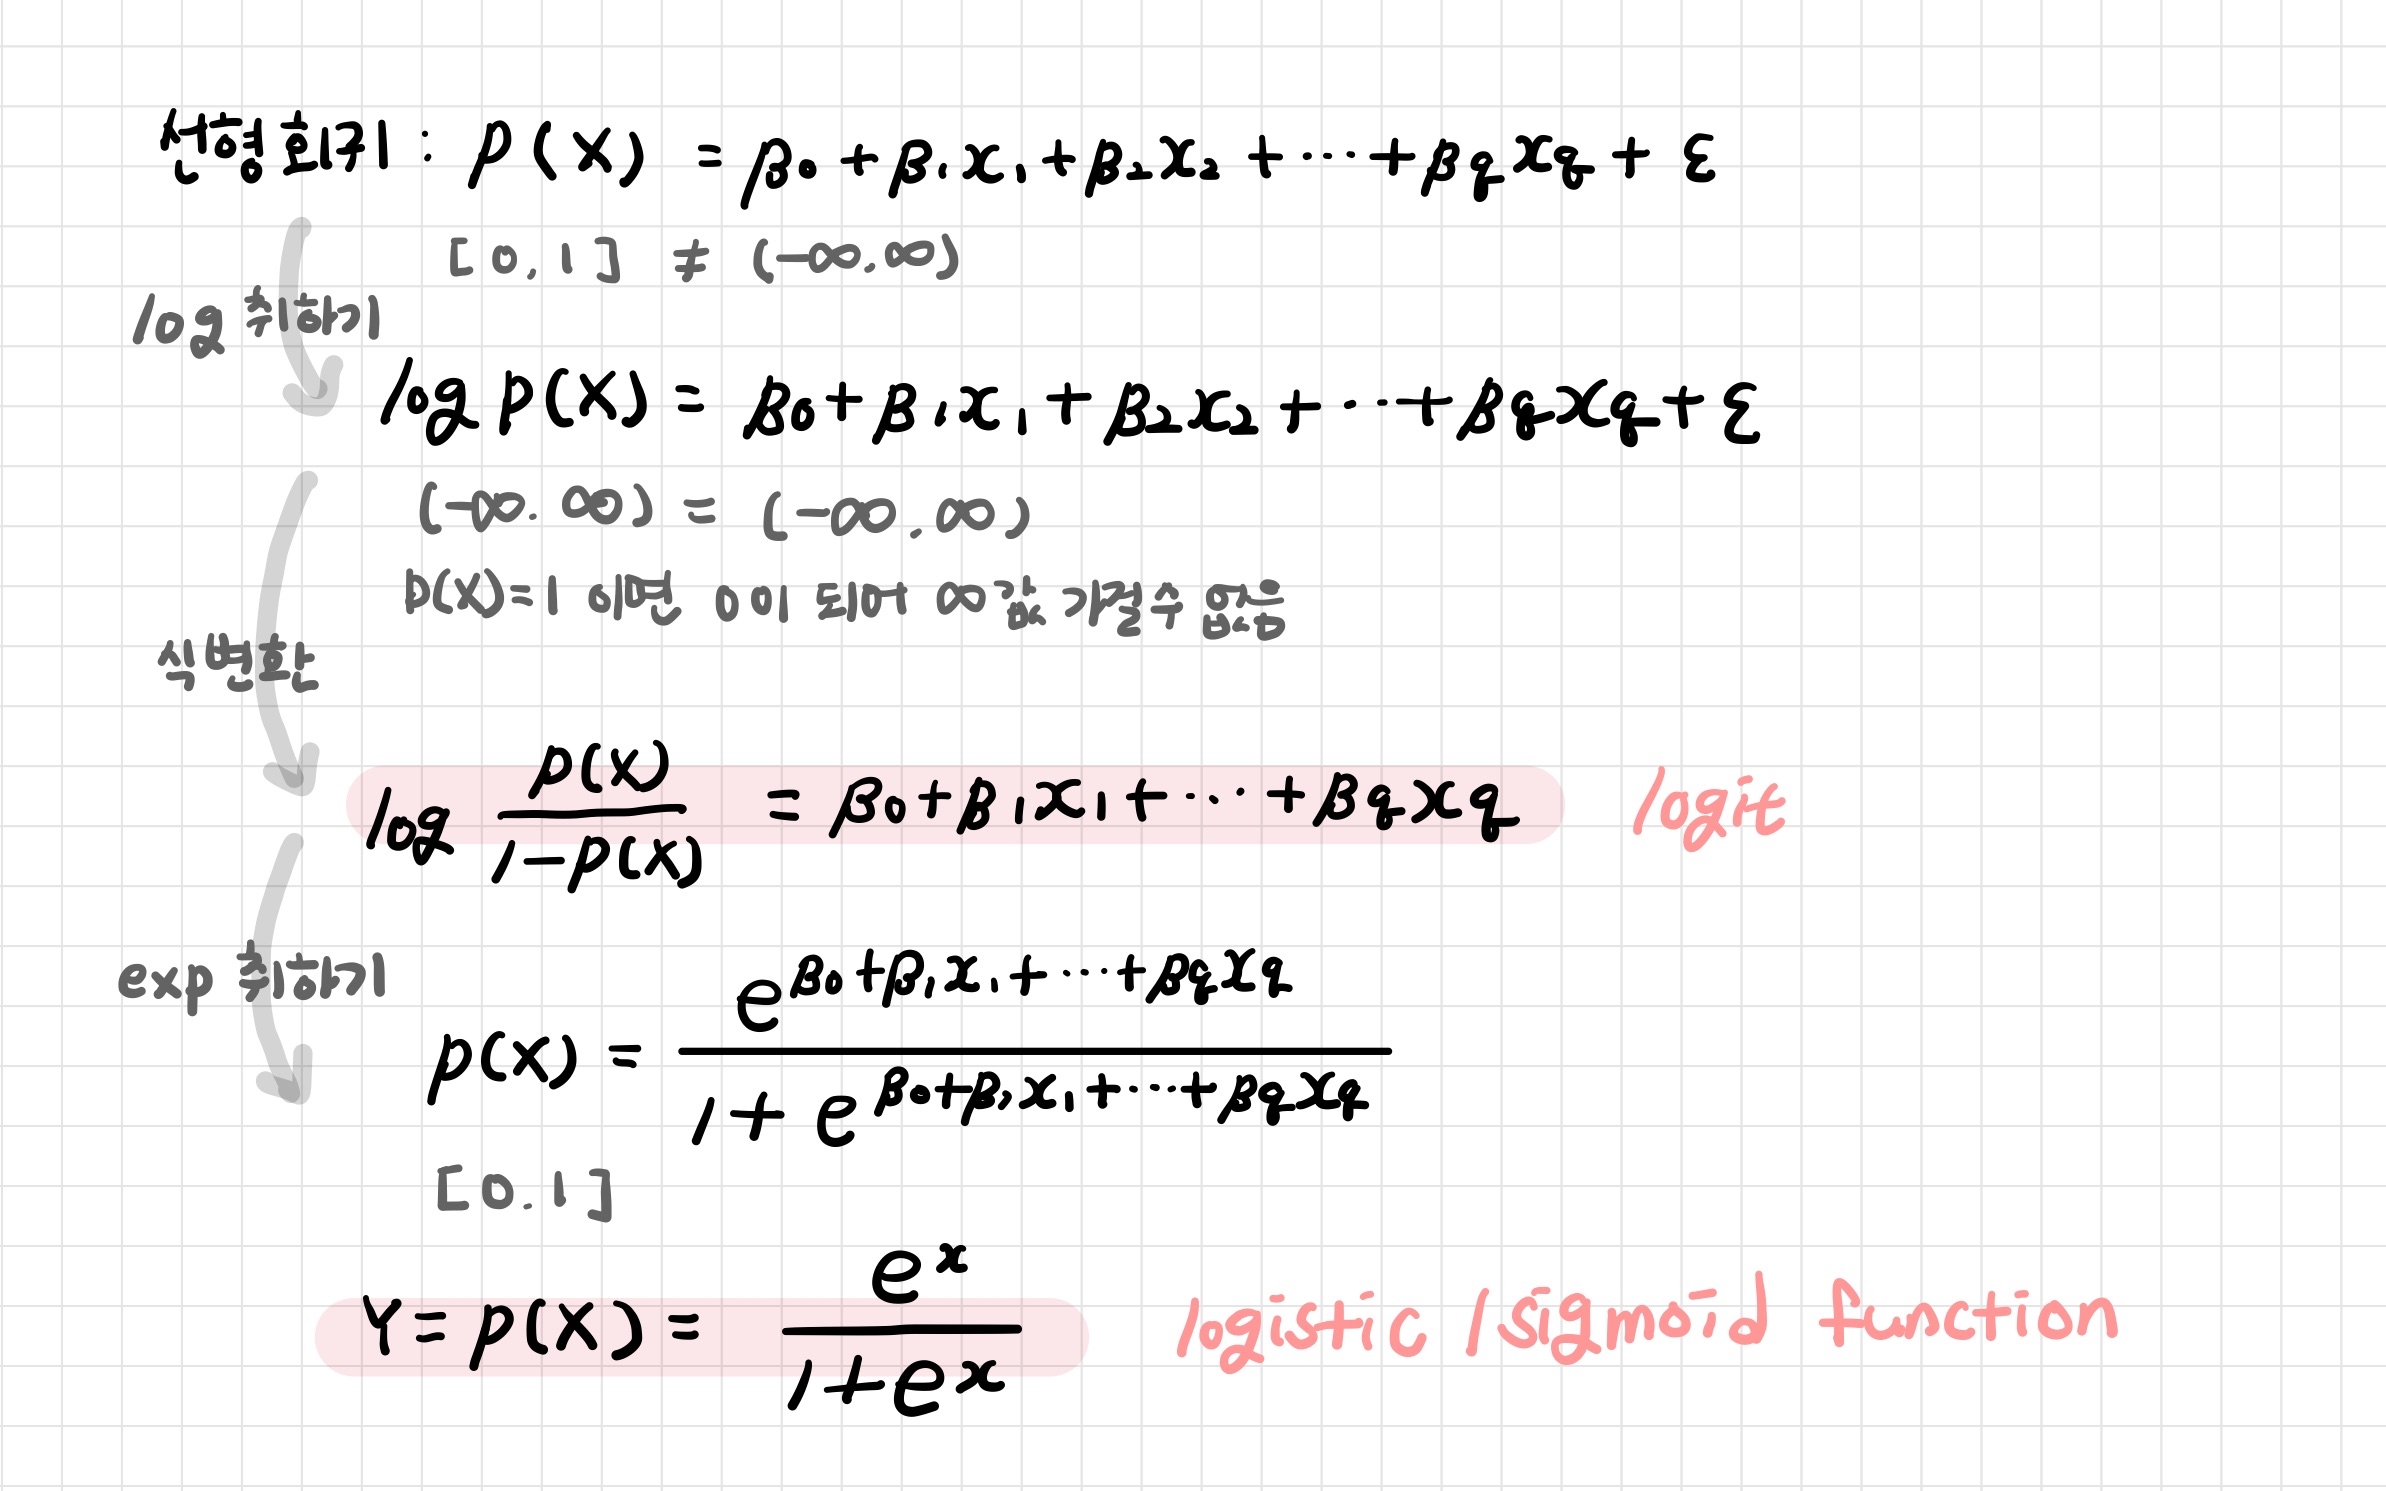 선형회귀 : P(X) = β₀ + β₁x₁ + β₂x₂ + ⋯ + βqxq + ε
[0, 1] ≠ (-∞.∞)
log 취하기
log p(X) = β₀ + β₁x₁ + β₂x₂ + ⋯ + βqxq + ε
(-∞. ∞) = (-∞.∞)
p(X)=1 이면 0이 되어 ∞값 가질수 없음
식변환
log p(X) / 1-p(X) = β₀+β₁x₁+⋯+βqxq logit
exp 취하기
p(X) = e^(β₀+β₁x₁+⋯+βqxq) / 1+ e^(β₀+β₁x₁+⋯+βqxq)
[0.1]
Y= p(X) = e^x / 1+e^x logistic /sigmoid function